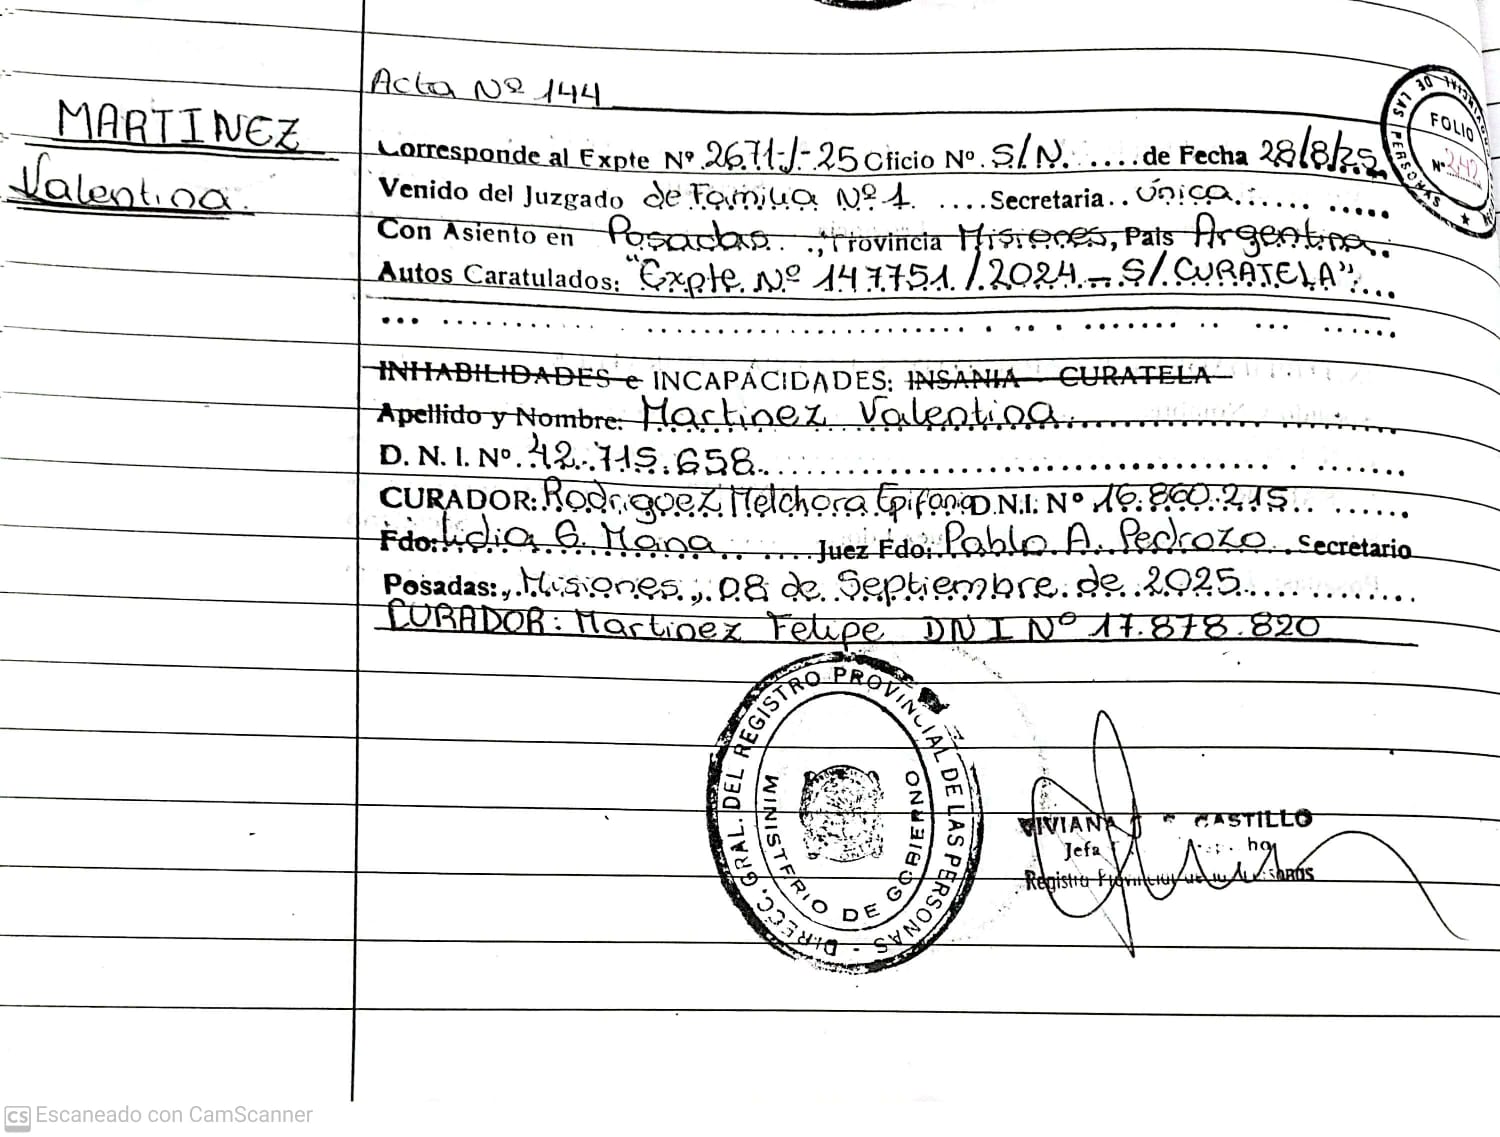 Acta Nº 144
MARTINEZ
Valentina.
Corresponde al Expte Nº 2671-/-25 Oficio Nº. S/N. .... de Fecha 28/8/25
Venido del Juzgado de Familia Nº 1. .... Secretaria .. Única.
Con Asiento en Posadas. ., Provincia Misiones, Pais Argentina.
Autos Caratulados: "Expte. Nº 147751 / 2024 - S/ CURATELA"
INHABILIDADES e INCAPACIDADES: INSANIA CURATELA
Apellido y Nombre: Martinez Valentina.
D. N. I. Nº. 42.715.658.
CURADOR: Rodriguez Melchora Epifania D.N.I: Nº 16.860.215.
Fdo: Lidia G. Mana .... Juez Fdo: Pablo A. Pedrozo. Secretario
Posadas:, Misiones, 08 de Septiembre de 2025.
CURADOR: Martinez Felipe DNI Nº 17.878.820
DE LAS PERSONAS
FOLIO
Nº 242
DIRECC. GRAL. DEL REGISTRO PROVINCIAL DE LAS PERSONAS -
MINISTERIO DE GOBIERNO
VIVIANA CASTILLO
Jefa
Registro Provincial
CS Escaneado con CamScanner